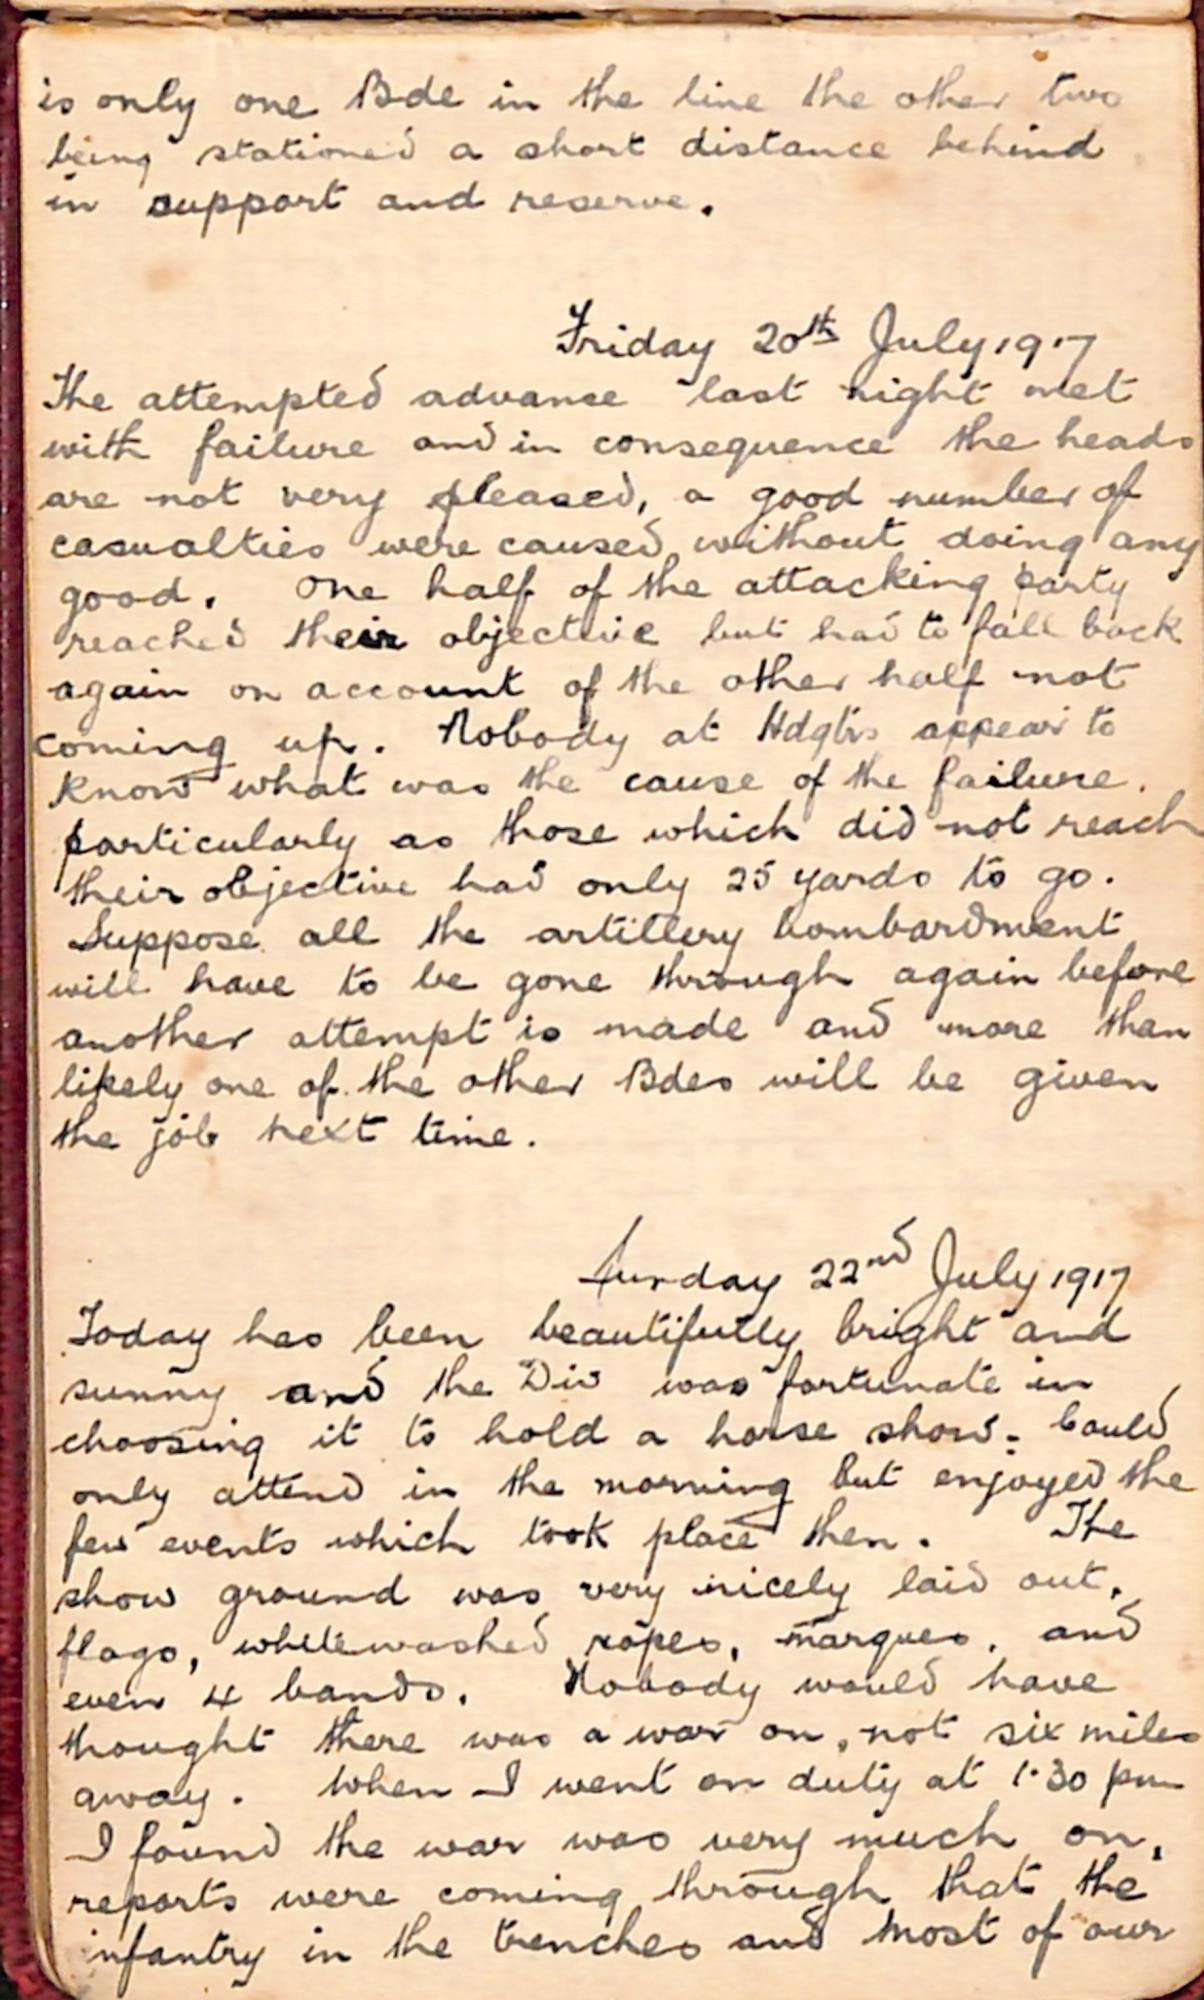 is only one Bde in the line the other two
being stationed a short distance behind
in support and reserve.
Friday 20th July 1917
The attempted advance last night met
with failure and in consequence the heads
are not very pleased, a good number of
casualties were caused without doing any
good. One half of the attacking party
reached their objective but had to fall back
again on account of the other half not
coming up. Nobody at Hdqtrs appear to
know what was the cause of the failure.
particularly as those which did not reach
their objective had only 25 yards to go.
Suppose all the artillery bombardment
will have to be gone through again before
another attempt is made and more than
likely one of the other Bdes will be given
the job next time.
Sunday 22nd July 1917
Today has been beautifully bright and
sunny and the Div was fortunate in
choosing it to hold a horse show. Could
only attend in the morning but enjoyed the
few events which took place then. The
show ground was very nicely laid out,
flags, whitewashed ropes, marques, and
even 4 bands. Nobody would have
thought there was a war on, not six miles
away. When I went on duty at 1.30 pm
I found the war was very much on,
reports were coming through that the
infantry in the trenches and most of our